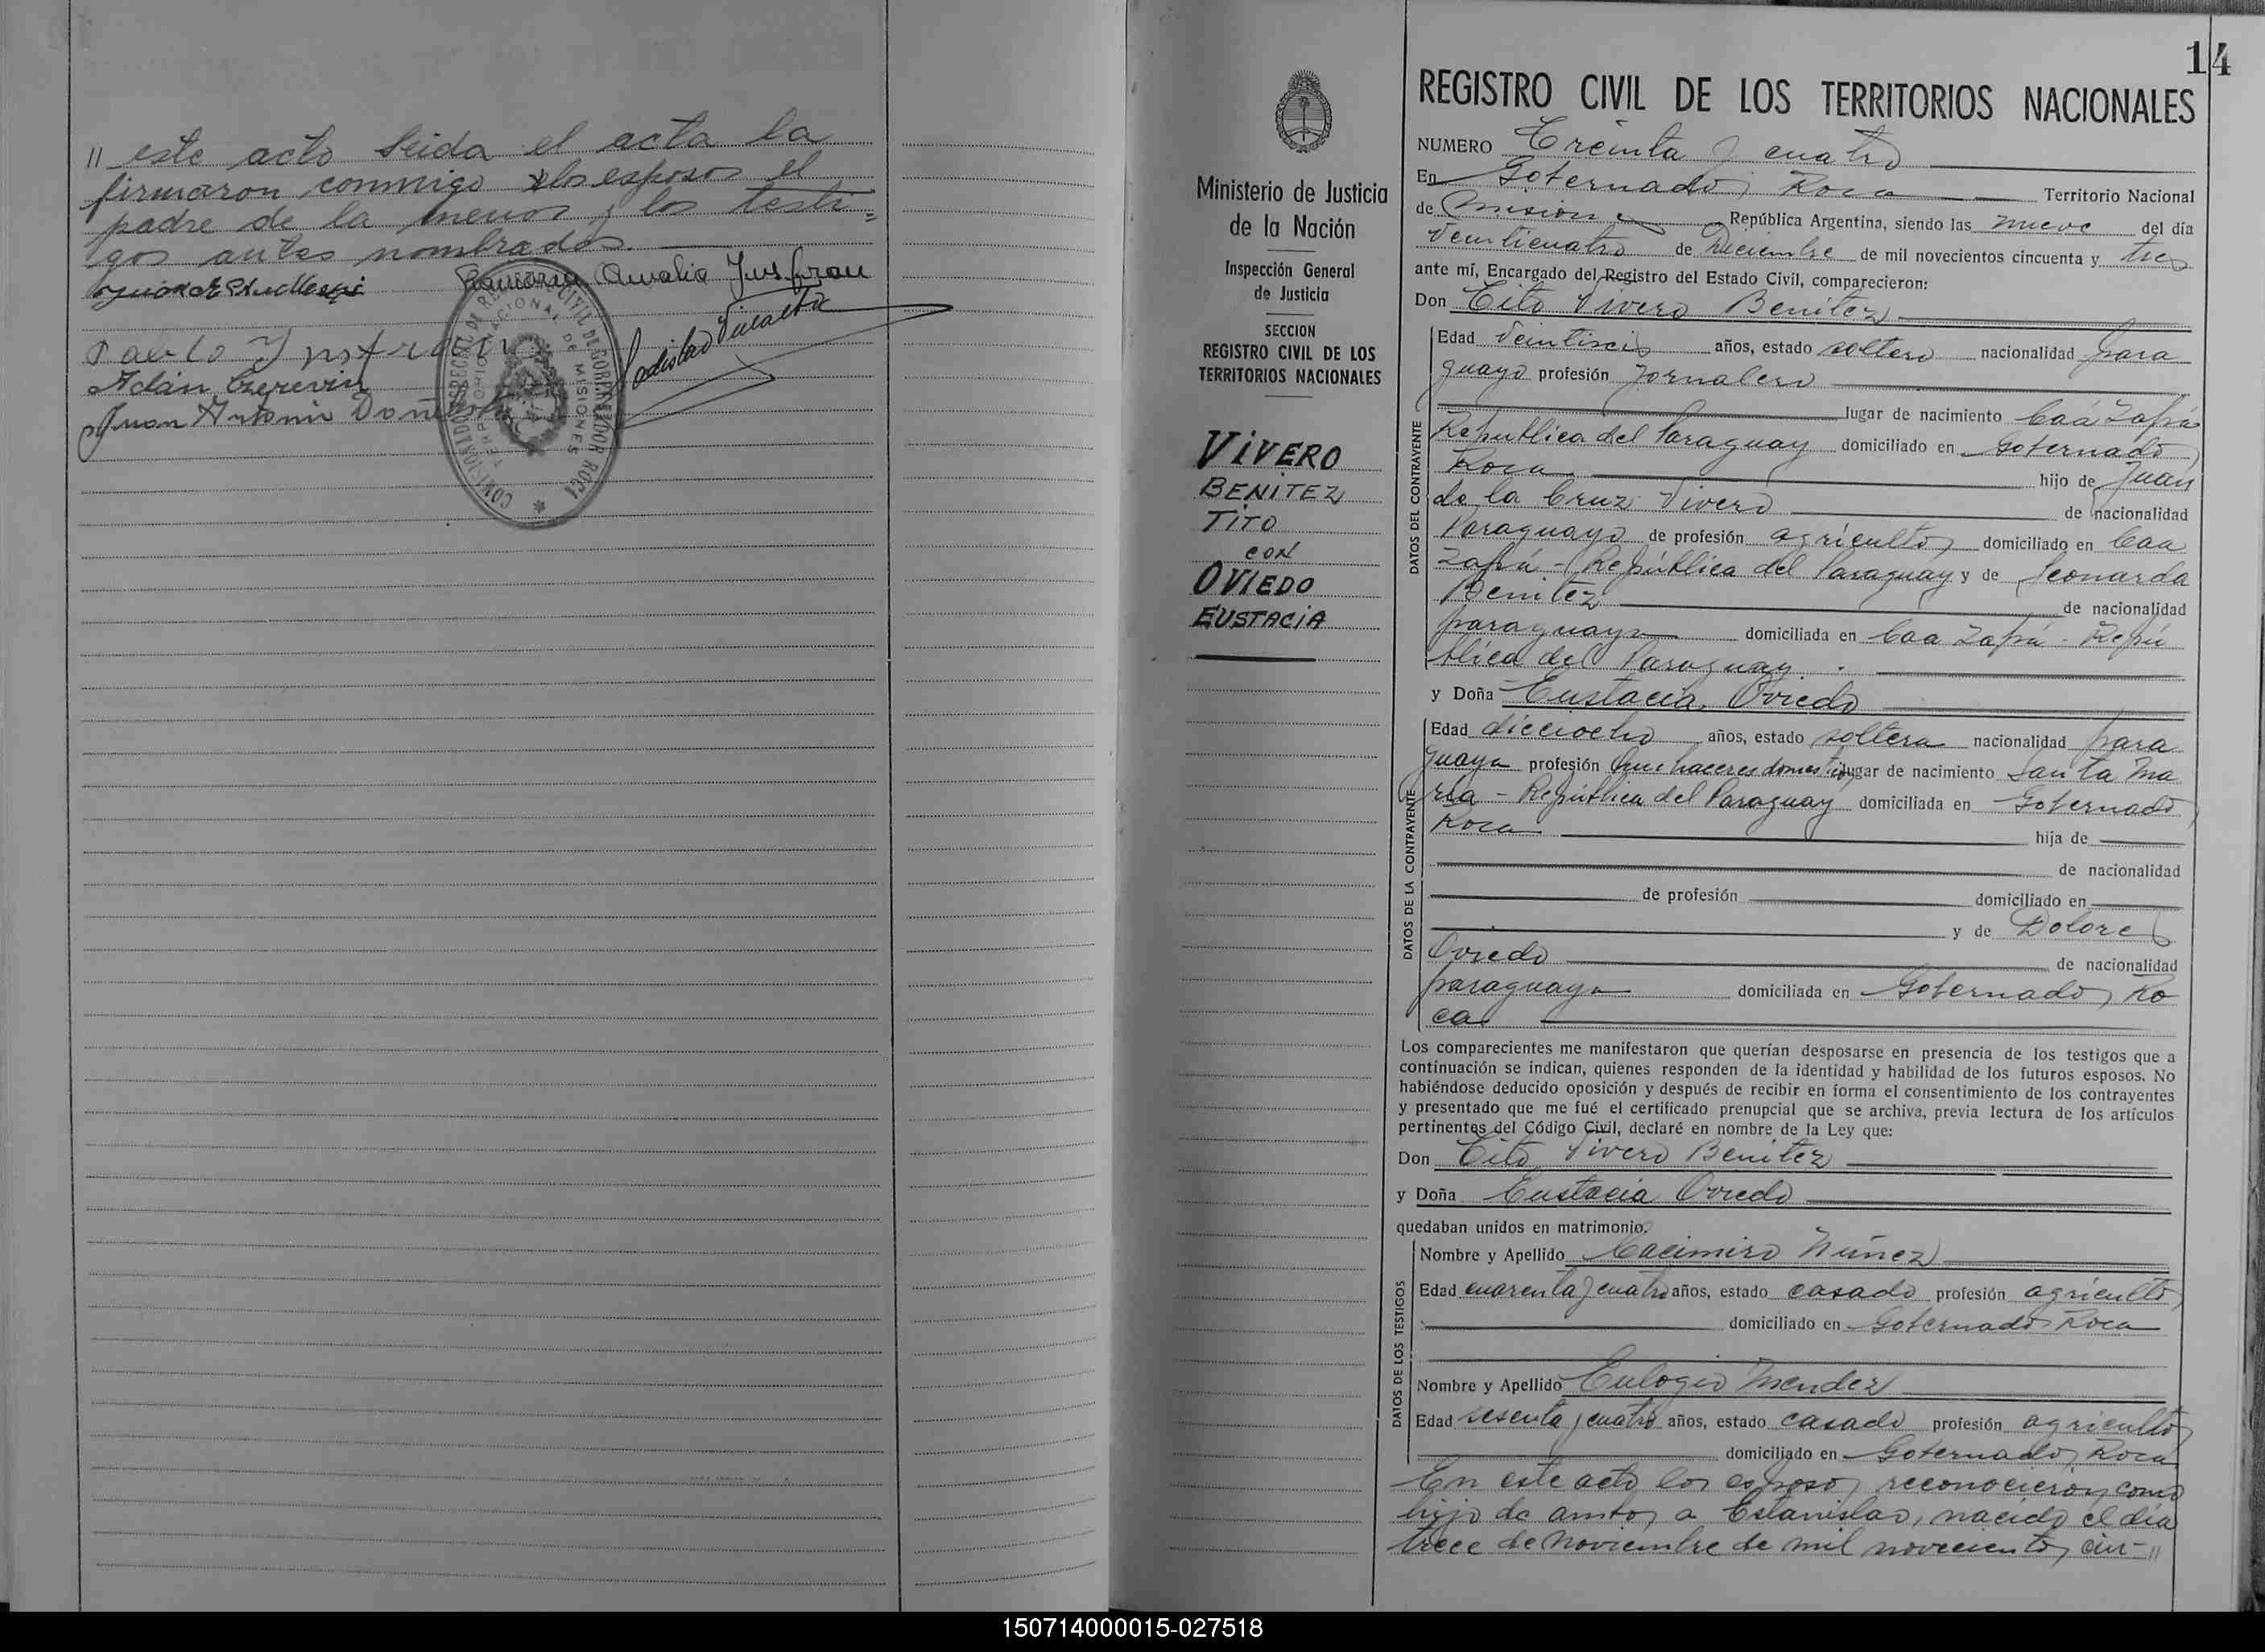 " este acto leida el acta la
firmaron conmigo los esposos el
padre de la menor y los testi=
gos antes nombrados.
Ramona Amalia Insfran
Pablo Ynsfran
Ladislao Villalba
Adan Czerevin
Juan Antonio
TERRITORIO NACIONAL DE MISIONES
14
Ministerio de Justicia
de la Nación
Inspección General
de Justicia
SECCION
REGISTRO CIVIL DE LOS
TERRITORIOS NACIONALES
VIVERO
BENITEZ
TITO
CON
OVIEDO
EUSTACIA
REGISTRO CIVIL DE LOS TERRITORIOS NACIONALES
NUMERO Treinta y cuatro
En Gobernador Roca Territorio Nacional
de Misiones República Argentina, siendo las nueve del día
veinticuatro de Diciembre de mil novecientos cincuenta y tres
ante mí, Encargado del Registro del Estado Civil, comparecieron:
Don Tito Vivero Benitez
DATOS DEL CONTRAYENTE
Edad veintiseis años, estado soltero nacionalidad para
guayo profesión Jornalero
lugar de nacimiento Caá Zapá
República del Paraguay domiciliado en Gobernador
Roca hijo de Juan
de la Cruz Vivero de nacionalidad
Paraguayo de profesión agricultor domiciliado en Caa
Zapá - República del Paraguay y de Leonarda
Benitez de nacionalidad
paraguaya domiciliada en Caa Zapá - Repú
blica del Paraguay.
y Doña Eustacia Oviedo
DATOS DE LA CONTRAYENTE
Edad dieciocho años, estado soltera nacionalidad para
guaya profesión quehaceres domesticos lugar de nacimiento Santa Ma
ria - República del Paraguay domiciliada en Gobernador
Roca hija de
de nacionalidad
de profesión domiciliado en
y de Dolores
Oviedo de nacionalidad
paraguaya domiciliada en Gobernador Ro
ca
Los comparecientes me manifestaron que querían desposarse en presencia de los testigos que a
continuación se indican, quienes responden de la identidad y habilidad de los futuros esposos. No
habiéndose deducido oposición y después de recibir en forma el consentimiento de los contrayentes
y presentado que me fué el certificado prenupcial que se archiva, previa lectura de los artículos
pertinentes del Código Civil, declaré en nombre de la Ley que:
Don Tito Vivero Benitez
y Doña Eustacia Oviedo
quedaban unidos en matrimonio.
DATOS DE LOS TESTIGOS
Nombre y Apellido Cacimiro Núñez
Edad cuarenta y cuatro años, estado casado profesión agricultor
domiciliado en Gobernador Roca
Nombre y Apellido Eulogio Mendez
Edad sesenta y cuatro años, estado casado profesión agricultor
domiciliado en Gobernador Roca
En este acto los esposos reconocieron como
hijo de ambos a Estanislao, nacido el dia
trece de Noviembre de mil novecientos cin-"
150714000015-027518